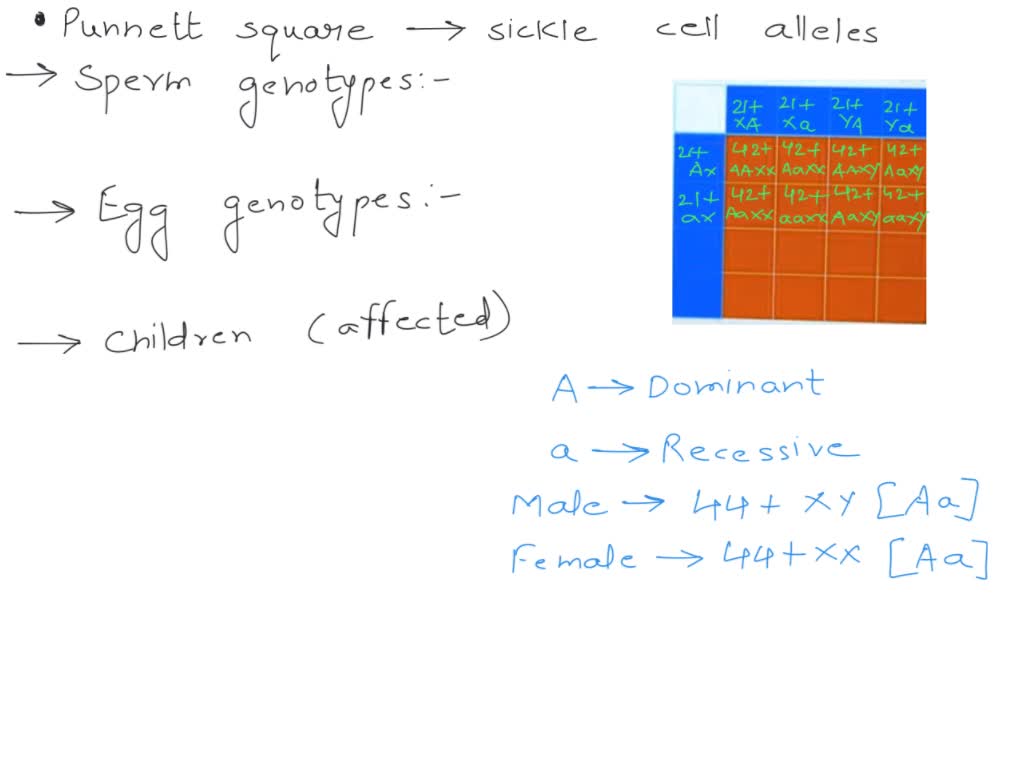 • Punnett square → sickle cell alleles
→ Sperm genotypes:-
21+ 21+ 21+ 21+
XA Xa YA Ya
21+ 42+ 42+ 42+ 42+
Ax AAXX AaXX AAXY AaXY
21+ 42+ 42+ 42+ 42+
ax AaXX aaxx AaXY aaXY
→ Egg genotypes:-
→ children (affected)
A → Dominant
a → Recessive
Male → 44+ XY [Aa]
Female → 44+XX [Aa]